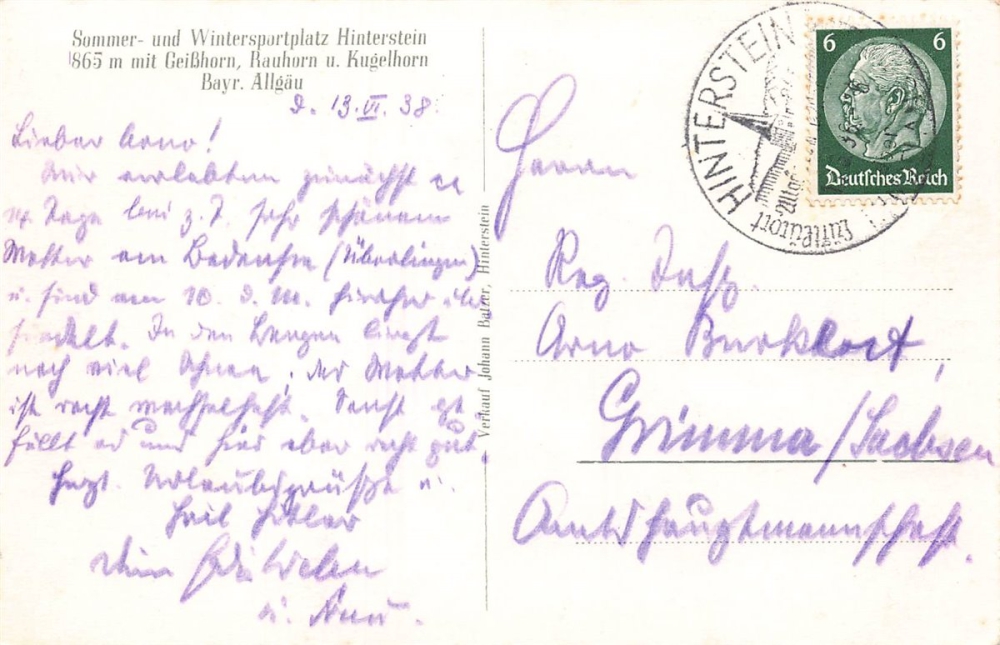 Sommer- und Wintersportplatz Hinterstein
865 m mit Geißhorn, Rauhorn u. Kugelhorn
Bayr. Allgäu
d. 13. VI. 38.
Lieber Arno!
Wir verlebten zunächst
Tage bei z. T. sehr schönem
Wetter am Bodensee (Überlingen)
u. sind am 10. d. M. hierher über
siedelt. In den Bergen liegt
noch viel Schnee; der Wetter
ist recht wechselhaft. Sonst ge
fällt es uns hier aber recht gut.
Herzl. Urlaubsgrüße u.
Heil Hitler
Dein
u. Frau.
Verkauf Johann Balzer, Hinterstein
HINTERSTEIN
Luftkurort
6 6
Deutsches Reich
Herrn
Reg. Insp.
Arno Burkhardt,
Grimma/Sachsen
Amtshauptmannschaft.